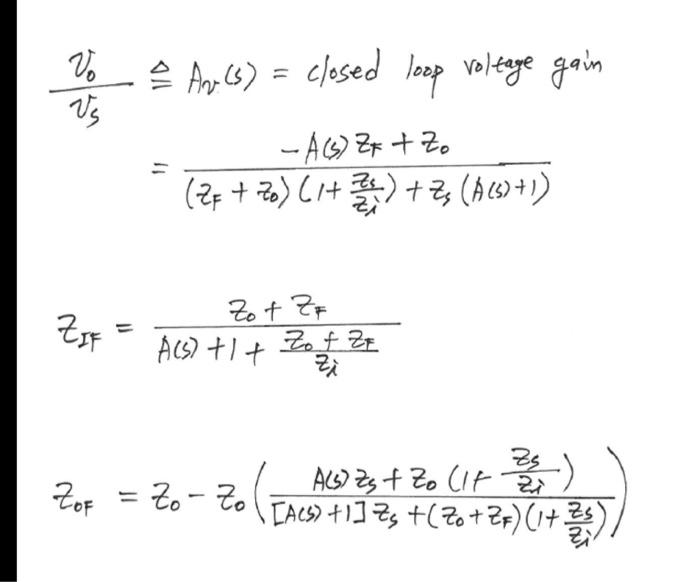 V₀/Vₛ ≜ Aᵥ(s) = closed loop voltage gain
= (-A(s) Z_F + Z₀) / ((Z_F + Z₀)(1 + Zₛ/Zᵢ) + Zₛ (A(s)+1))
Z_IF = (Z₀ + Z_F) / (A(s) + 1 + (Z₀ + Z_F)/Zᵢ)
Z_OF = Z₀ - Z₀ ( (A(s) Zₛ + Z₀ (1 + Zₛ/Zᵢ)) / ([A(s) + 1] Zₛ + (Z₀ + Z_F)(1 + Zₛ/Zᵢ)) )